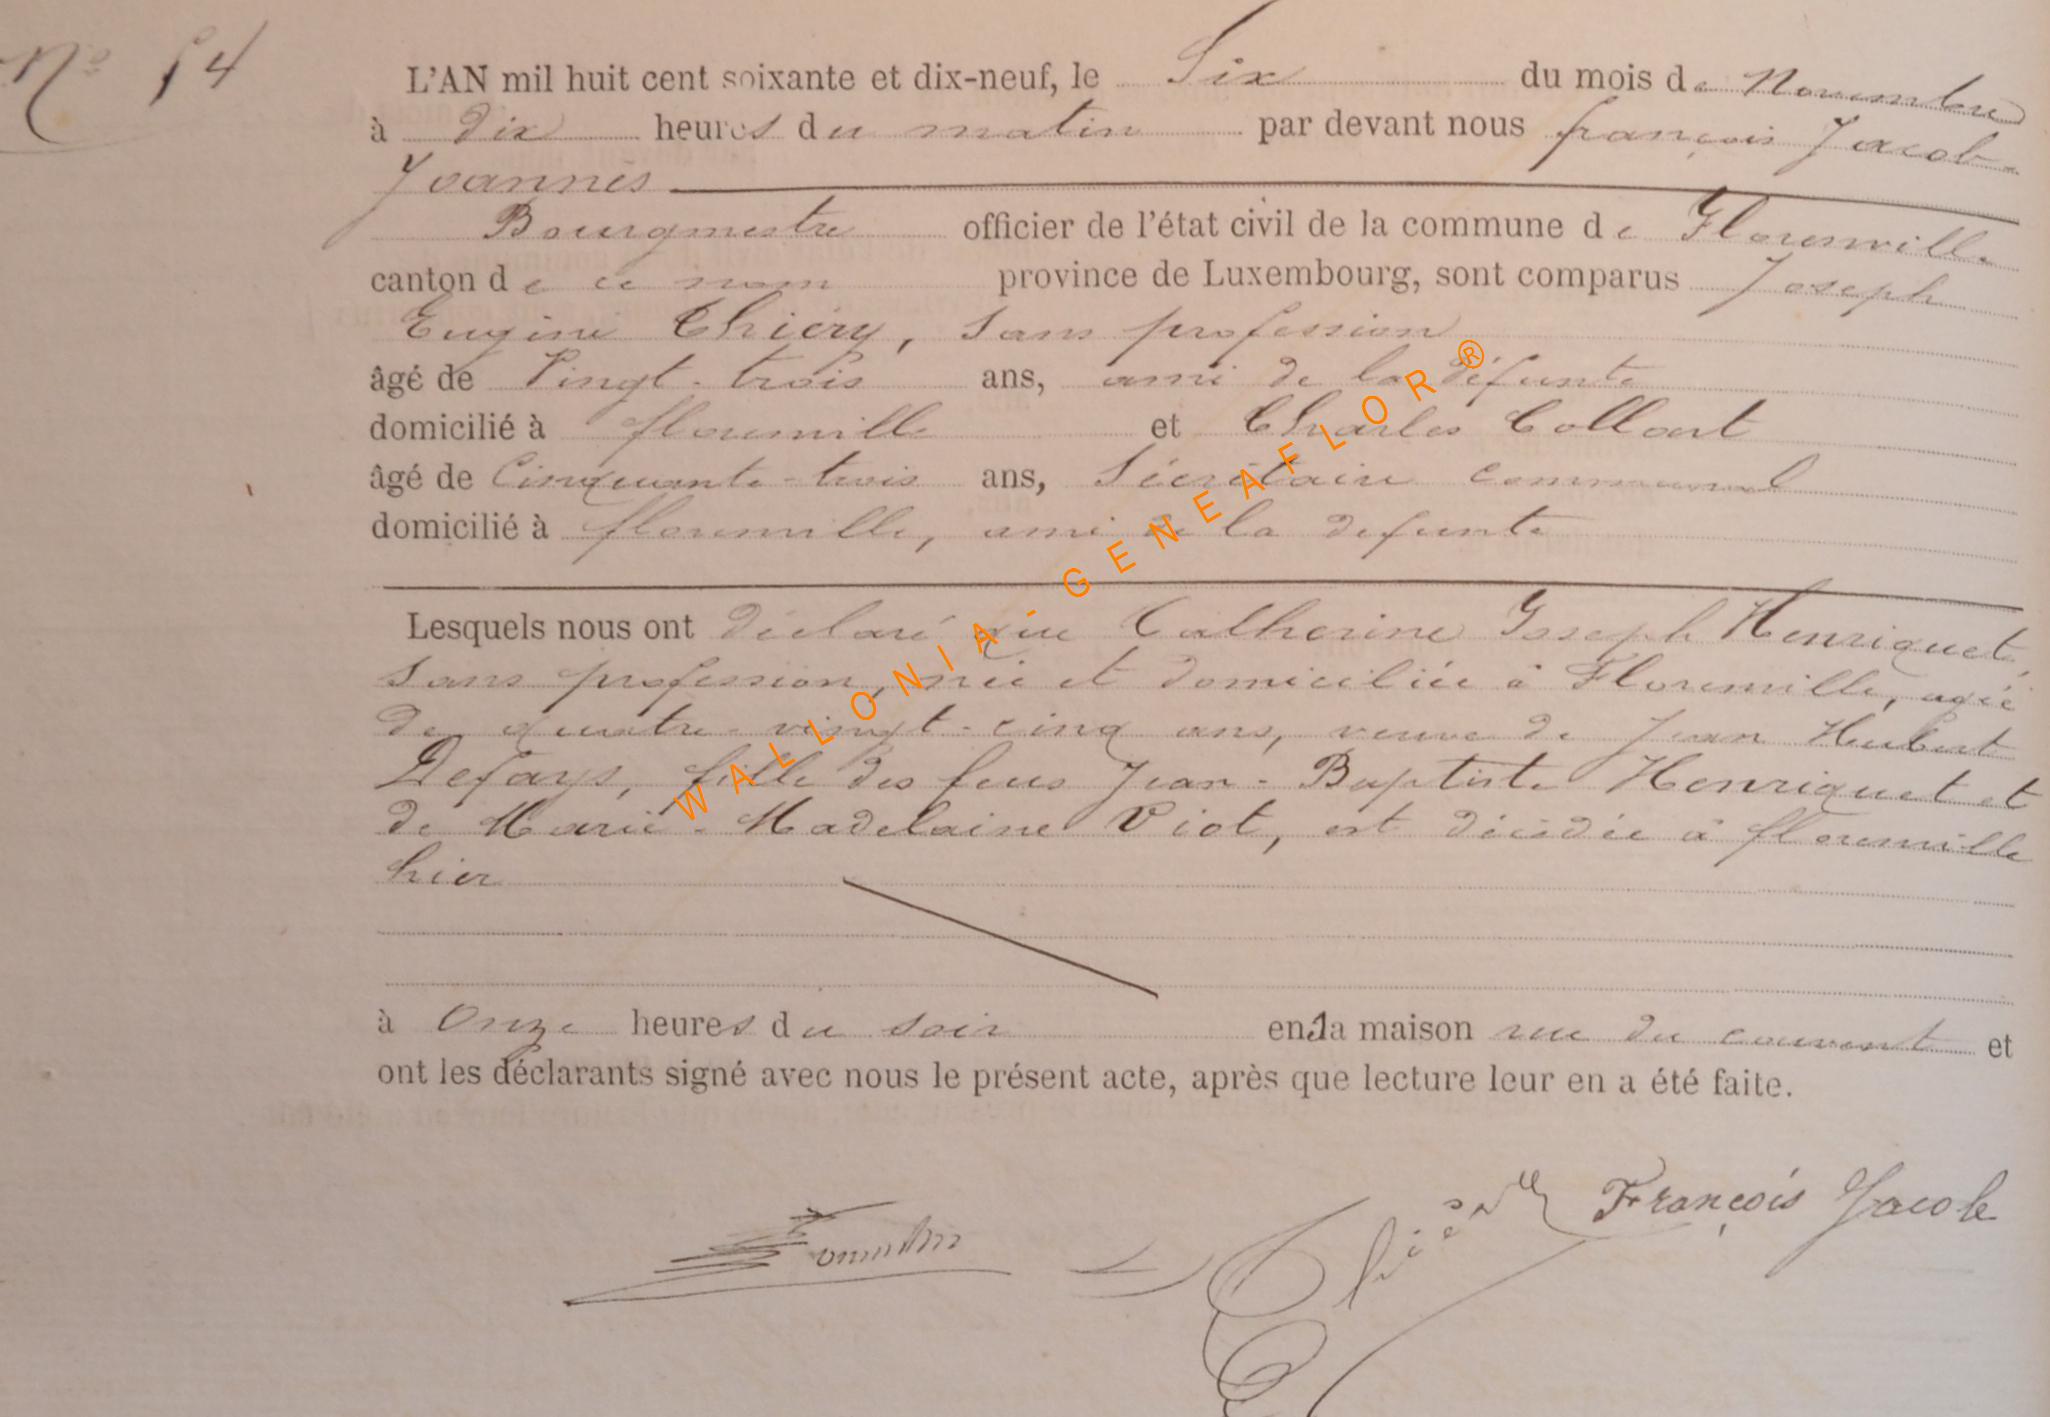 N° 54
L'AN mil huit cent soixante et dix-neuf, le Six du mois de Novembre
à dix heures du matin par devant nous françois Jacob
Joannès
Bourgmestre officier de l'état civil de la commune de Florenville
canton de ce nom province de Luxembourg, sont comparus Joseph
Eugène Thiéry, sans profession
âgé de Vingt-trois ans, ami de la défunte
domicilié à florenville et Charles Collart
âgé de Cinquante-trois ans, Sécrétaire communal
domicilié à florenville, ami de la defunte
Lesquels nous ont déclaré que Catherine Joseph Henriquet,
sans profession, née et domiciliée à Florenville, agée
de quatre-vingt-cinq ans, veuve de Jean Hubert
Defays, fille des feus Jean-Baptiste Henriquet et
de Marie-Madelaine Piot, est décédée à florenville
hier
à Onze heures du soir en la maison rue du couvent et
ont les déclarants signé avec nous le présent acte, après que lecture leur en a été faite.
François Jacob
WALLONIA - GENEAFLOR®